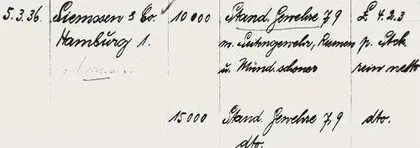 5.3.36. Siemssen & Co. 10 000 Stand. Gewehre 7,9 £ 4.2.3
Hamburg 1. m. Seitengewehr, Riemen p. Stck
u. Mündschoner rein netto
15 000 Stand. Gewehre 7,9 dto.
dto.